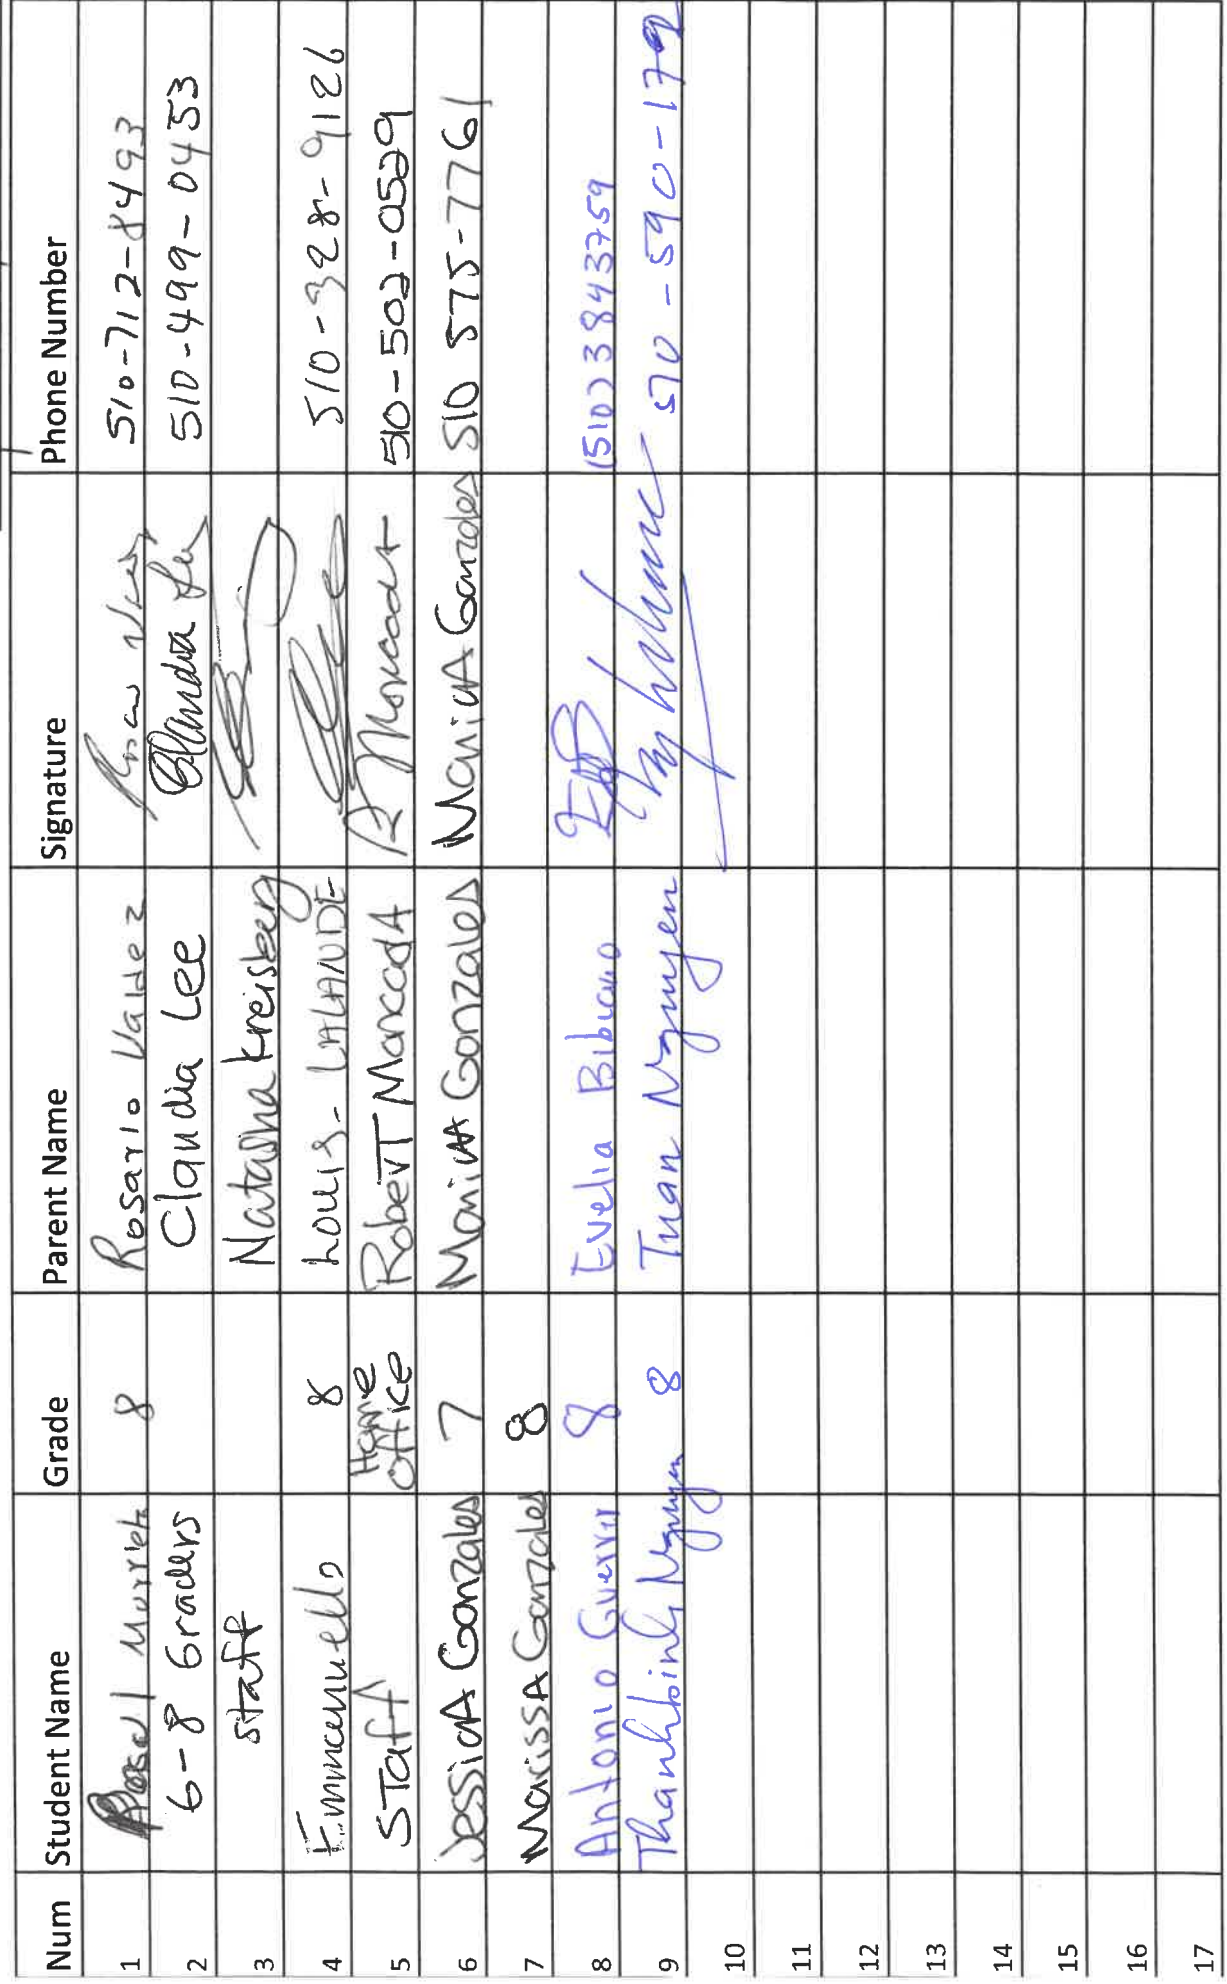 Num Student Name Grade Parent Name Signature Phone Number
1 8 Rosario Valdez 510-712-8493
2 6-8 Graders Claudia Lee Claudia Lee 510-499-0453
3 staff Natasha Kreisberg
4 Emmanuello 8 Louis- LALANDE 510-328-9126
5 STaff Home Office RoberT MoncadA R Moncada 510-502-0529
6 JessicA Gonzales 7 MonicA Gonzales MonicA Gonzales 510 575-7761
7 MarissA Gonzales 8
8 Antonio Guerra 8 Evelia Bibiano (510)3843759
9 Thanhbinh Nguyen 8 Tuan Nguyen 510-590-179
10
11
12
13
14
15
16
17